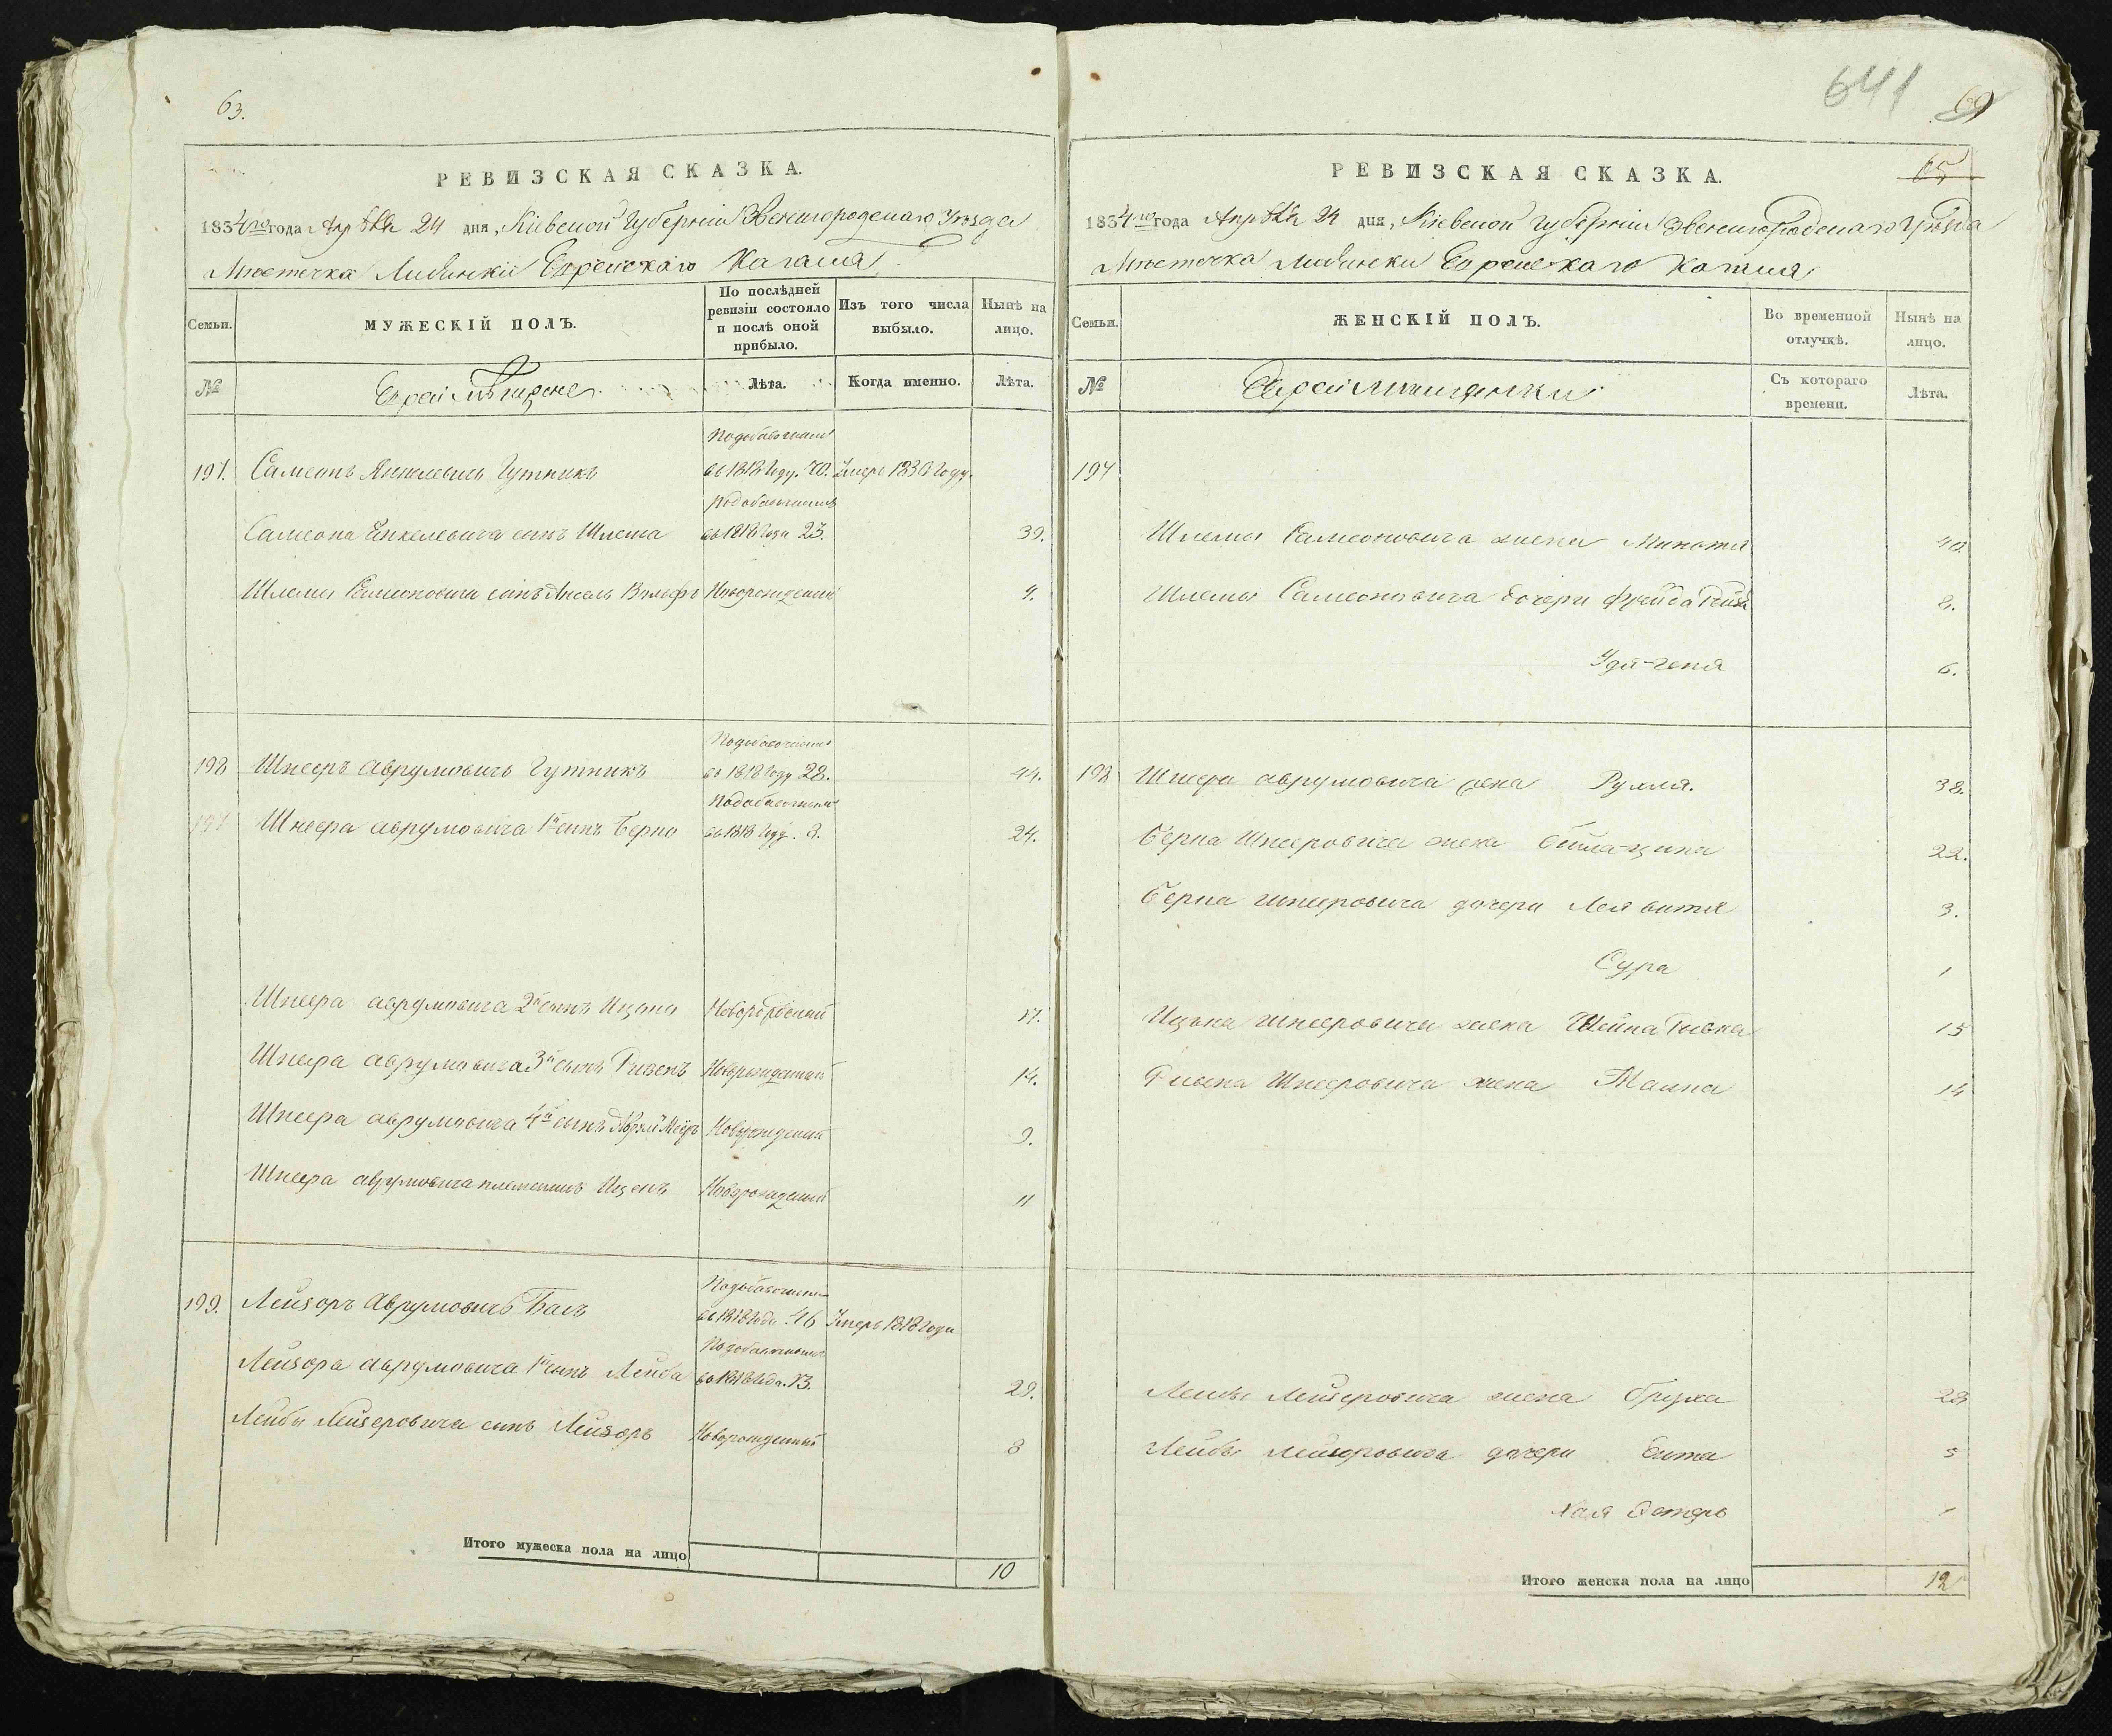 63.
РЕВИЗСКАЯ СКАЗКА.
1834го года Апрѣля 24 дня, Кіевской Губерніи Звенигородскаго Уѣзда
Мѣстечка Лисинкіи Еврейскаго Кагала
Семьи.
МУЖЕСКІЙ ПОЛЪ.
По послѣдней ревизіи состояло и послѣ оной прибыло.
Изъ того числа выбыло.
Нынѣ на лицо.
№
Евреи Мѣщане
Лѣта.
Когда именно.
Лѣта.
197. Самсонъ Янкелевичь Гутникъ По добавочныи въ 1818 году. 70. Умеръ 1830 году.
Самсона Енкелевича сынъ Шлема По добавочныи въ 1818 года 23. 39.
Шлемы Самсоновича сынъ Ансель Вольфъ Новорожденый 4.
198 Шнееръ Аврумовичь Гутникъ По добавочныи въ 1818 году 28. 44.
Шнеера Аврумовича 1й сынъ Берко По добавочныи въ 1818 году. 8. 24.
Шнеера Аврумовича 2й сынъ Ицько Новорожденый 17.
Шнеера Аврумовича 3й сынъ Ривенъ Новорожденый 14.
Шнеера Аврумовича 4й сынъ Меиръ Новорожденый 9.
Шнеера Аврумовича племенникъ Ицекъ Новорожденый 11
199. Лейзоръ Аврумовичь Басъ По добавочныи въ 1818 года 46 Умеръ 1818 года
Лейзора Аврумовича 1й сынъ Лейба По добавочныи въ 1818 года. 13. 29.
Лейбы Лейзеровича сынъ Лейзоръ Новорожденный 8
Итого мужеска пола на лицо 10
641
69
65
РЕВИЗСКАЯ СКАЗКА.
1834го года Апрѣля 24 дня, Кіевской Губерніи Звенигородскаго Уѣзда
Мѣстечка Лисинки Еврейскаго Кагала
Семьи.
ЖЕНСКІЙ ПОЛЪ.
Во временной отлучкѣ.
Нынѣ на лицо.
№
Евреи Мѣщанки
Съ котораго времени.
Лѣта.
197
Шлемы Самсоновича жена 40
Шлемы Самсоновича дочери Фрейда Рейза 8.
Удя-геня 6.
198 Шнеера Аврумовича жена Румля. 38.
Берка Шнееровича жена Бейла-ципа 22.
Берка Шнееровича дочери Лея витя 3.
Сура 1
Ицька Шнееровича жена Шейна Ривка 15
Ривена Шнееровича жена Малка 14
Лейбы Лейзеровича жена Бруха 28
Лейбы Лейзеровича дочери Ента 5
Хая Естеръ 1
Итого женска пола на лицо 12